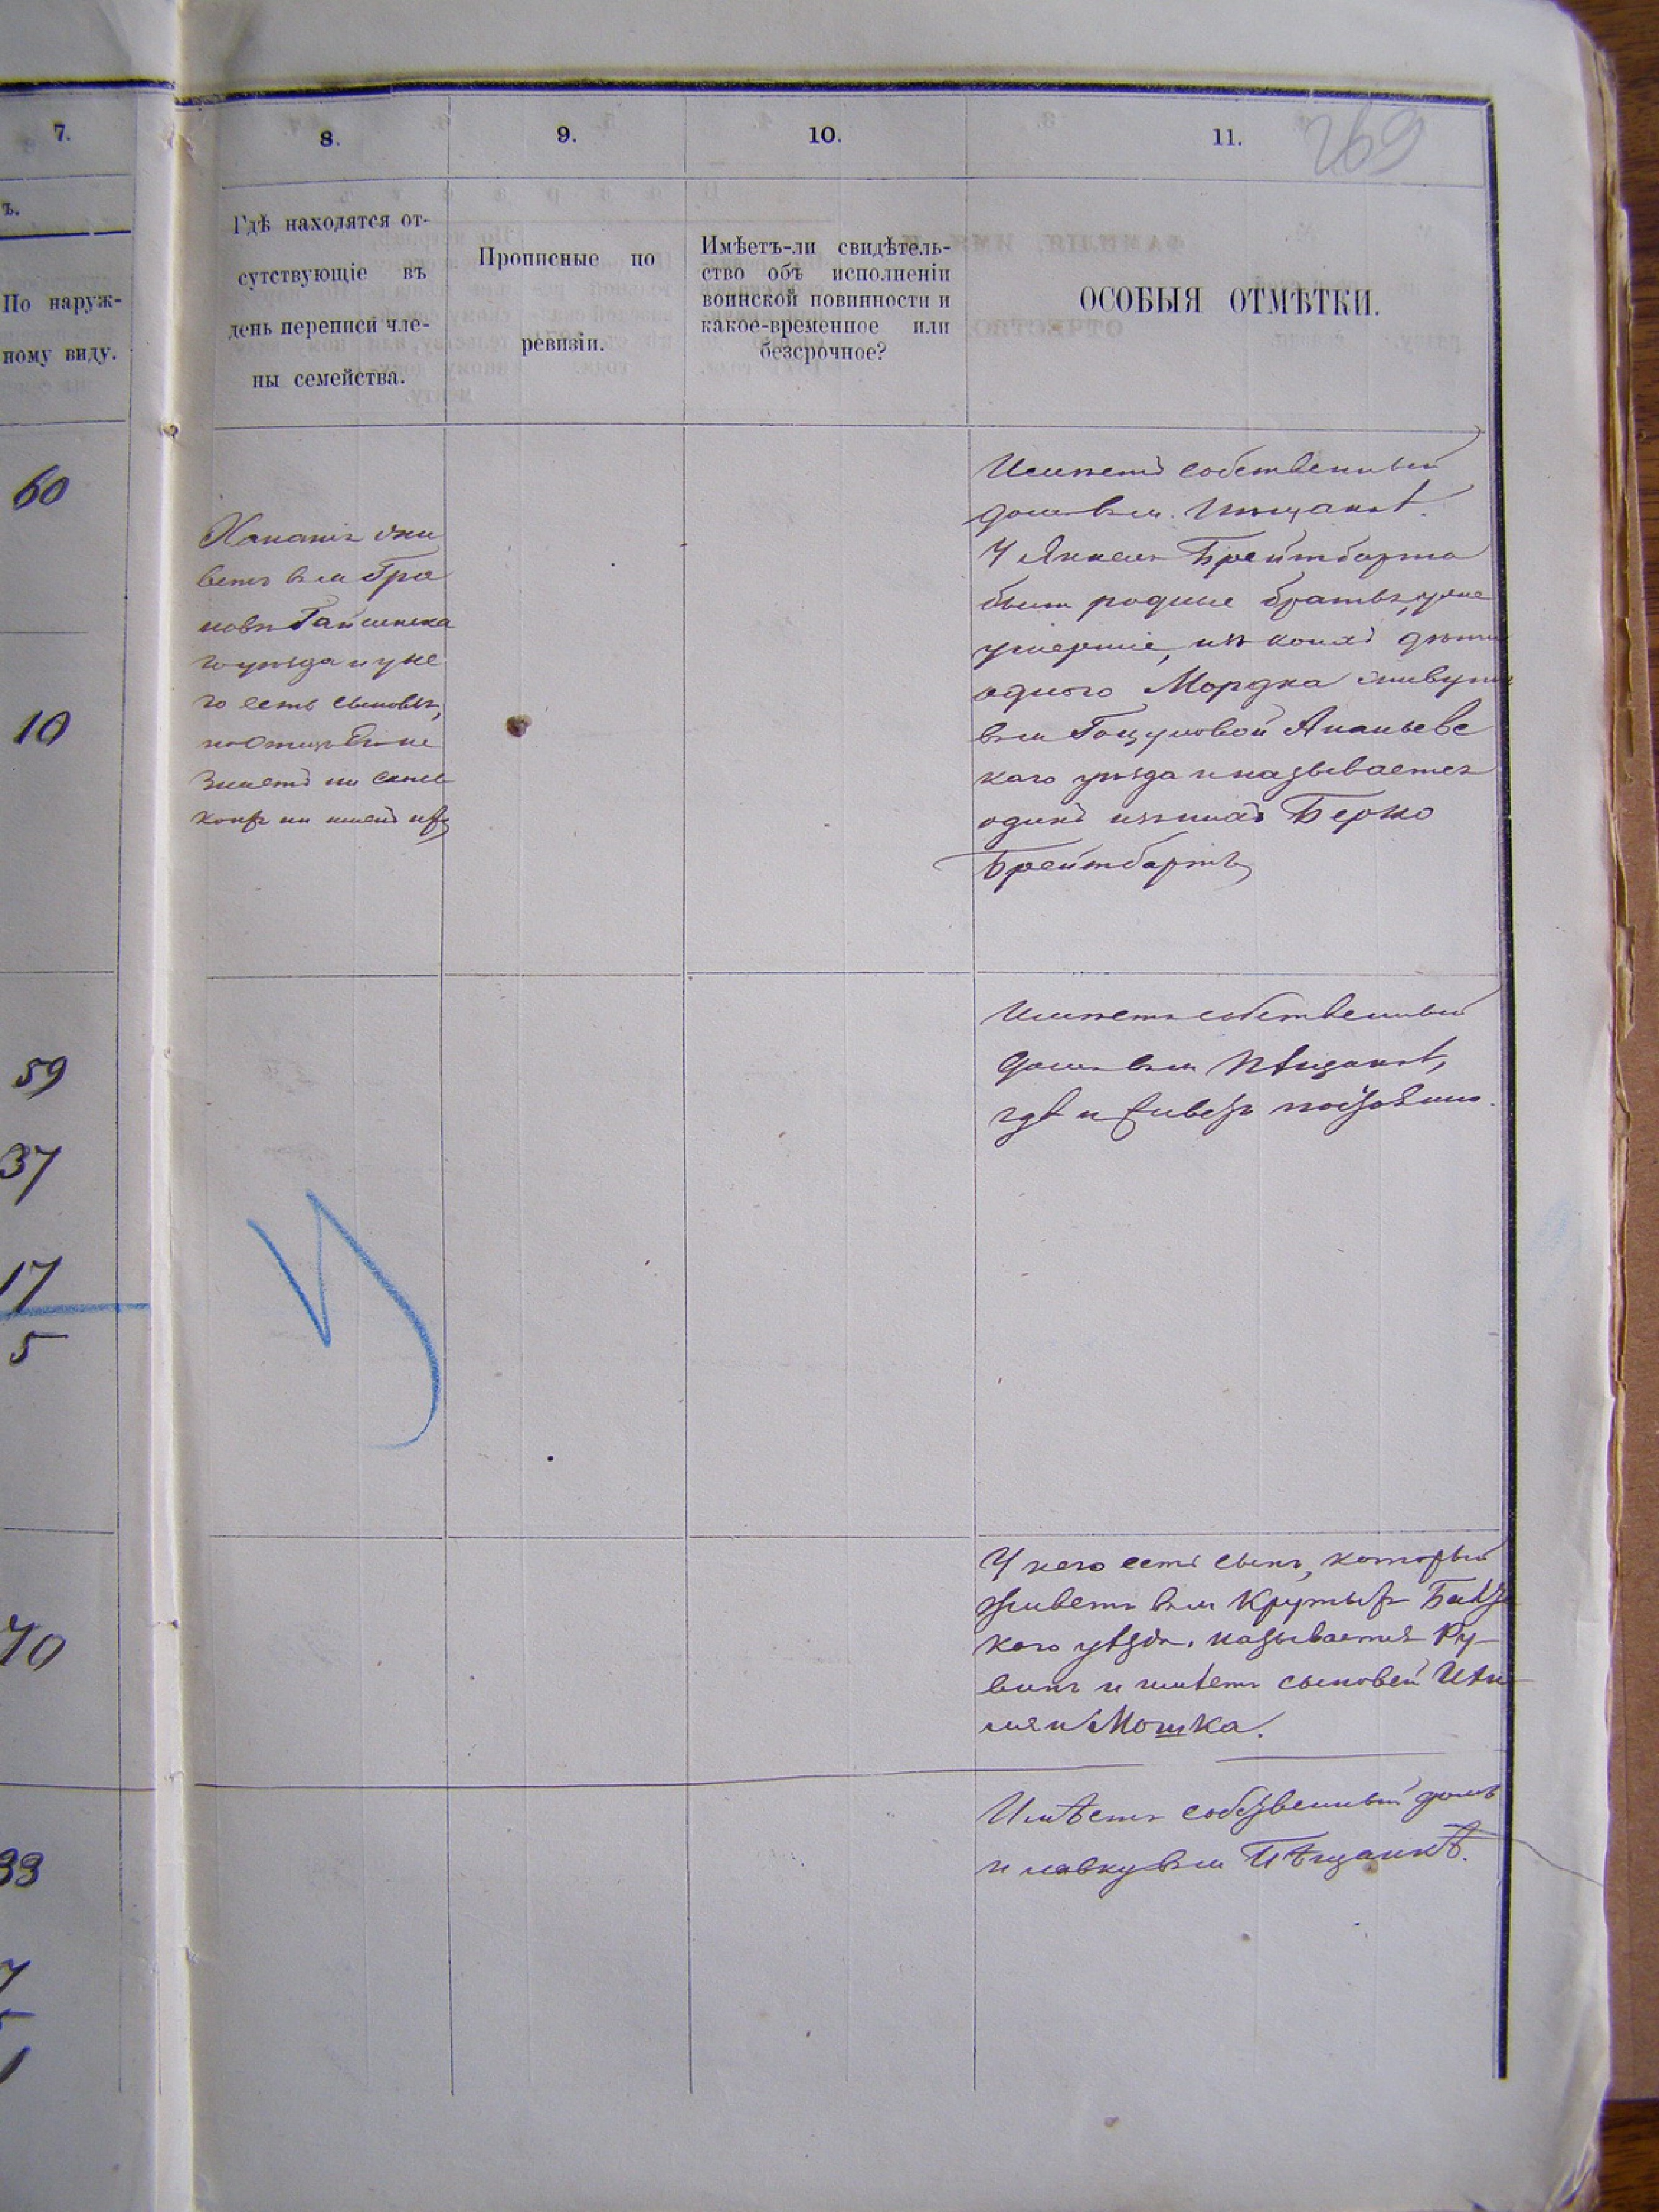 269
7.
8.
9.
10.
11.
ъ.
По наруж-
ному виду.
Гдѣ находятся от-
сутствующіе въ
день переписи чле-
ны семейства.
Прописные по
ревизіи.
Имѣетъ-ли свидѣтель-
ство объ исполненіи
воинской повинности и
какое-временное или
безсрочное?
ОСОБЫЯ ОТМѢТКИ.
60
10
59
37
17
5
70
33
7
1
Хананіъ жи
ветъ въ м Гра
новѣ Гайсинска
го уѣзда и у не
го есть сыновья,
но отецъ Его не
знаетъ ни
ни именъ ихъ
Имѣетъ собственный
домъ въ м. Пѣщанкѣ.
У Янкеля Брейтбарта
были родные братья, уже
умершіе, изъ коихъ дѣти
одного Мордка живутъ
въ м Гоцуловой Ананьевс
каго уѣзда и называется
одинъ изъ нихъ Берко
Брейтбартъ
Имѣетъ собственный
домъ въ м Пѣщанкѣ,
гдѣ и живетъ постоянно.
У него есть сынъ, который
живетъ въ м Крутыхъ Балтс
каго уѣзда, называется Ру-
винъ и имѣетъ сыновей
и Мошка.
Имѣетъ собственный домъ
и лавку въ м Пѣщанкѣ.